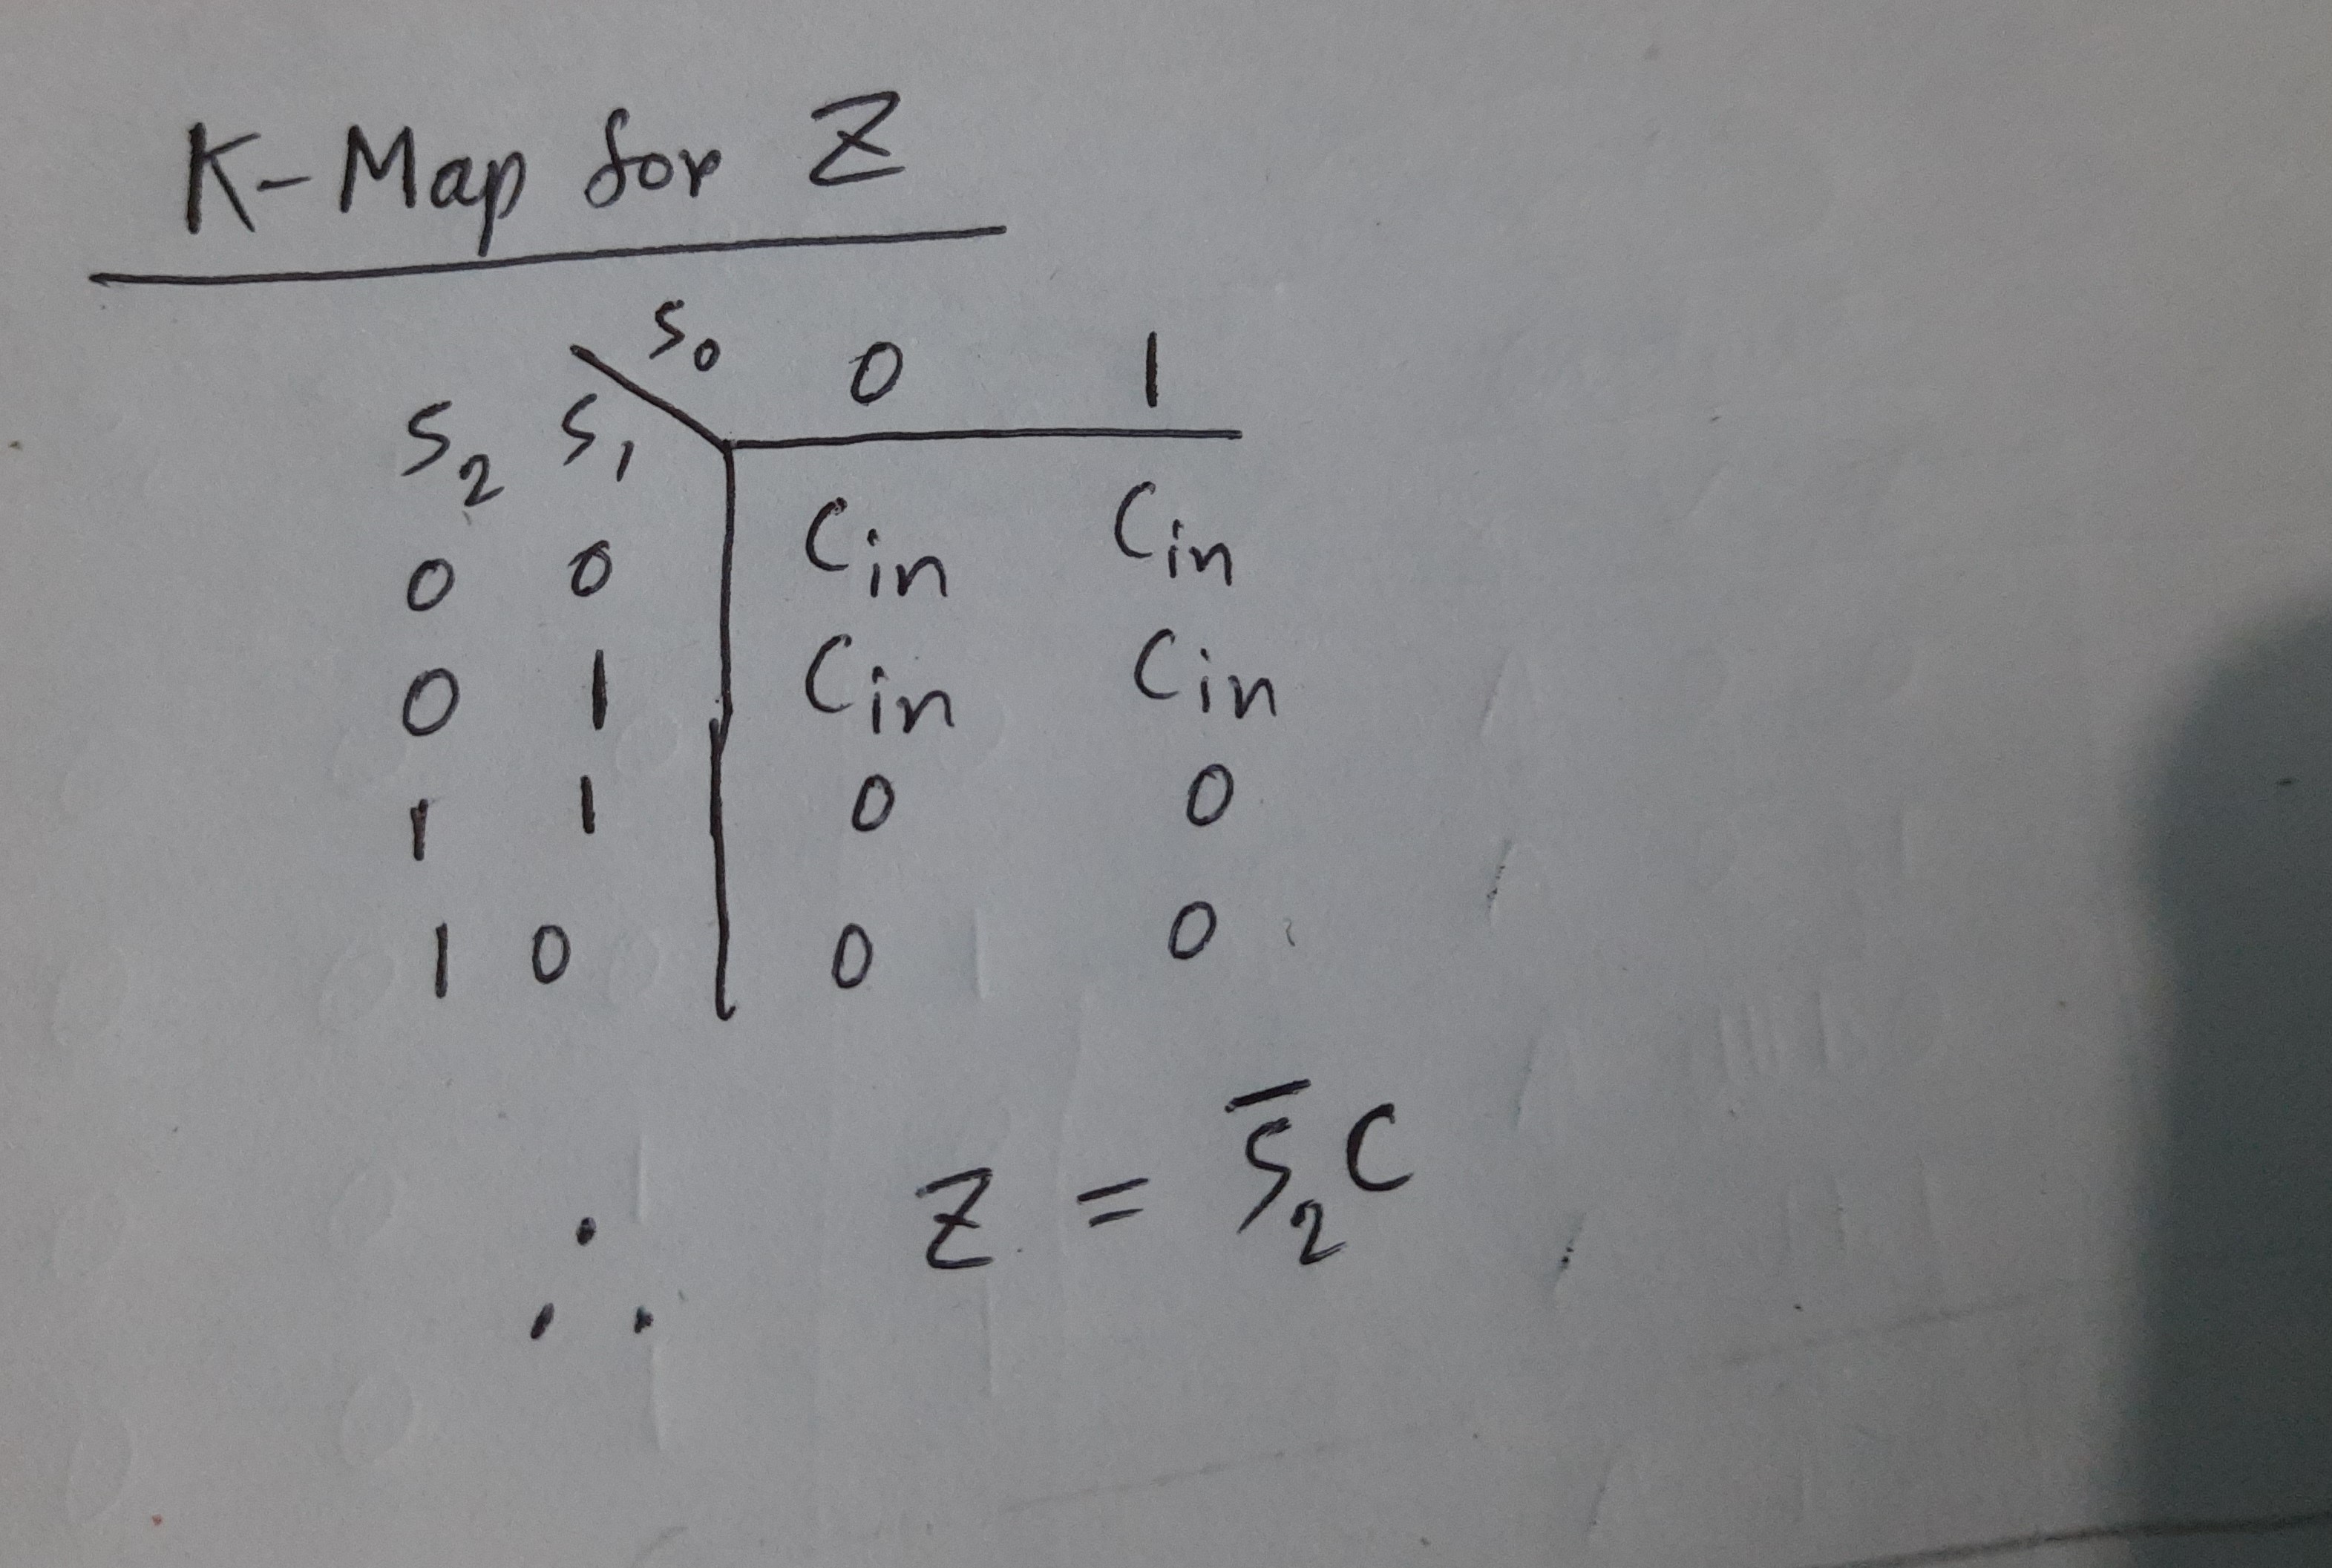 K-Map for Z
S₀ 0 1
S₂ S₁
0 0 Cin Cin
0 1 Cin Cin
1 1 0 0
1 0 0 0
∴ Z = S̅₂C